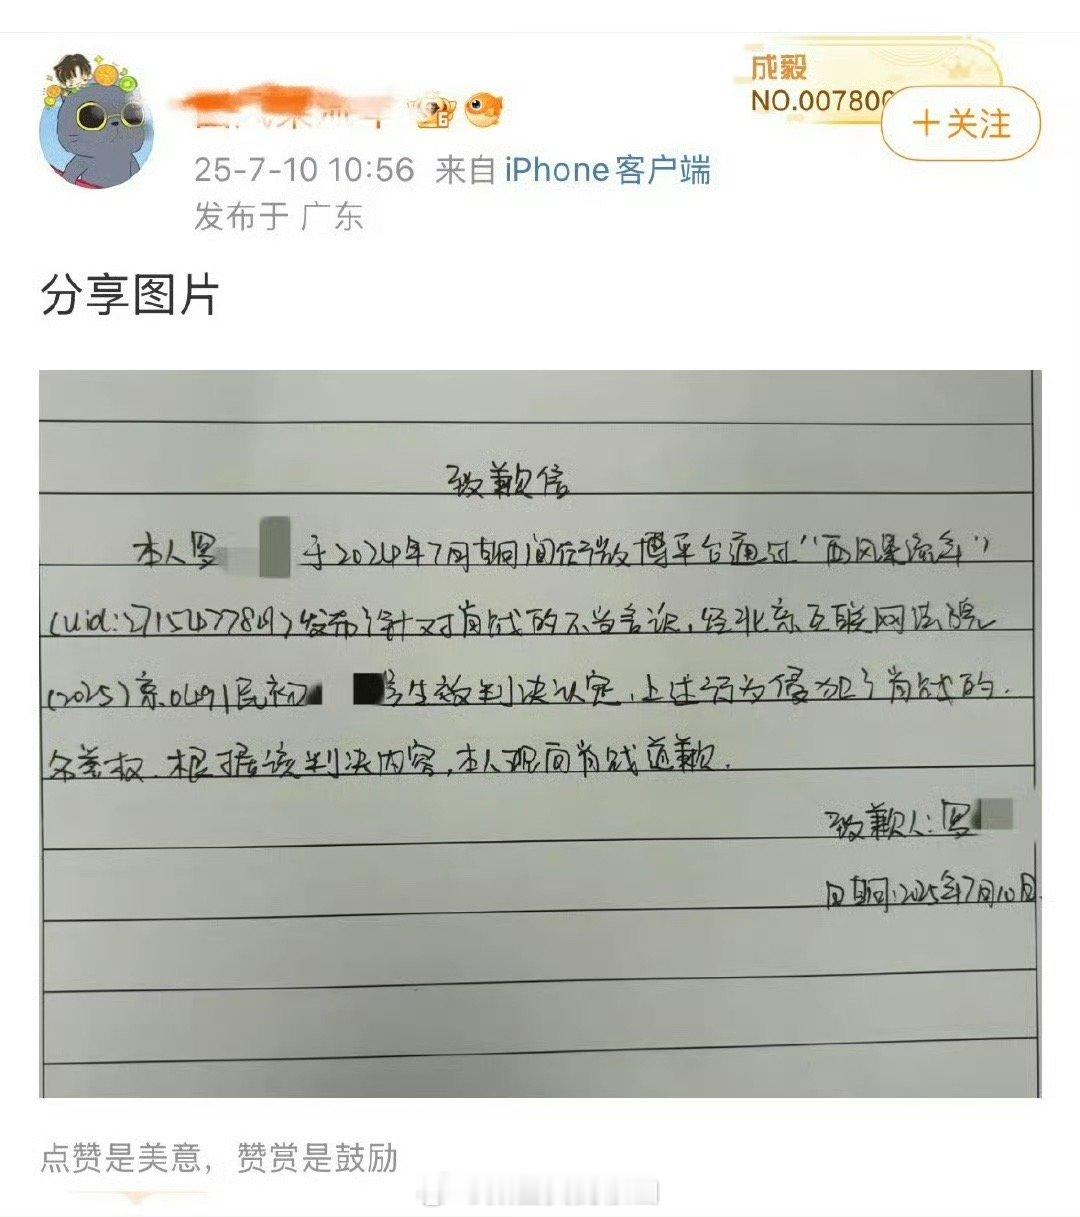 成毅
NO.007800
+关注
25-7-10 10:56 来自 iPhone客户端
发布于 广东
分享图片
致歉信
本人罗 于2024年7月期间在微博平台通过“西风桑流年”
(uid:2715477849)发布针对肖战的不当言论,经北京互联网法院
(2025)京0491民初 号生效判决认定,上述行为侵犯了肖战的
名誉权.根据该判决内容,本人现向肖战道歉.
致歉人:罗
日期:2025年7月10日.
点赞是美意，赞赏是鼓励